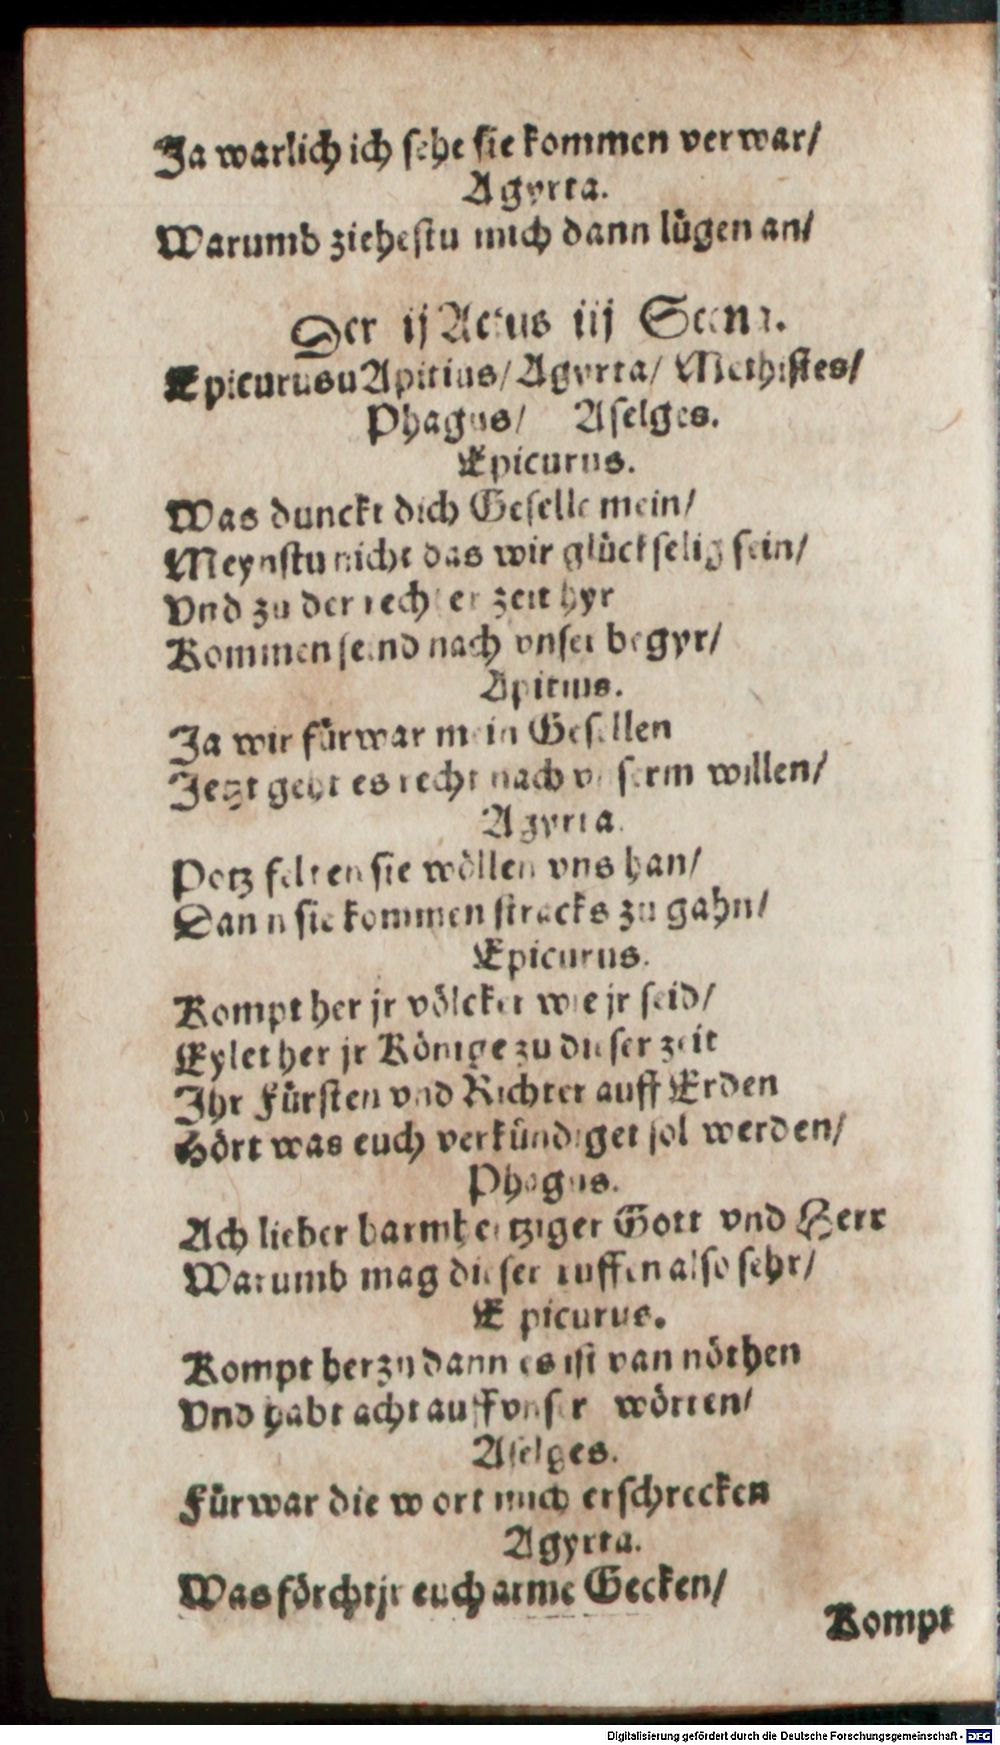 Ja warlich ich sehe sie kommen verwar/
Agyrta.
Warumb ziehestu mich dann lügen an/
Der ij Actus iij Scena.
Epicurusu Apitius/ Agyrta/ Methistes/
Phagus/ Aselges.
Epicurus.
Was dunckt dich Geselle mein/
Meynstu nicht das wir glückselig sein/
Vnd zu der rechter zeit hyr
Kommen seind nach vnser begyr/
Apitius.
Ja wir fürwar mein Gesellen
Jetzt geht es recht nach vnserm willen/
Agyrta.
Potz felten sie wöllen vns han/
Dann sie kommen stracks zu gahn/
Epicurus.
Kompt her jr völcker wie jr seid/
Eylet her jr Könige zu dieser zeit
Ihr Fürsten vnd Richter auff Erden
Hört was euch verkündiget sol werden/
Phagus.
Ach lieber barmhertziger Gott vnd Herr
Warumb mag dieser ruffen also sehr/
Epicurus.
Kompt herzu dann es ist van nöthen
Vnd habt acht auff vnser wörten/
Aselges.
Fürwar die wort mich erschrecken
Agyrta.
Was förchtjr euch arme Gecken/
Kompt
Digitalisierung gefördert durch die Deutsche Forschungsgemeinschaft - DFG